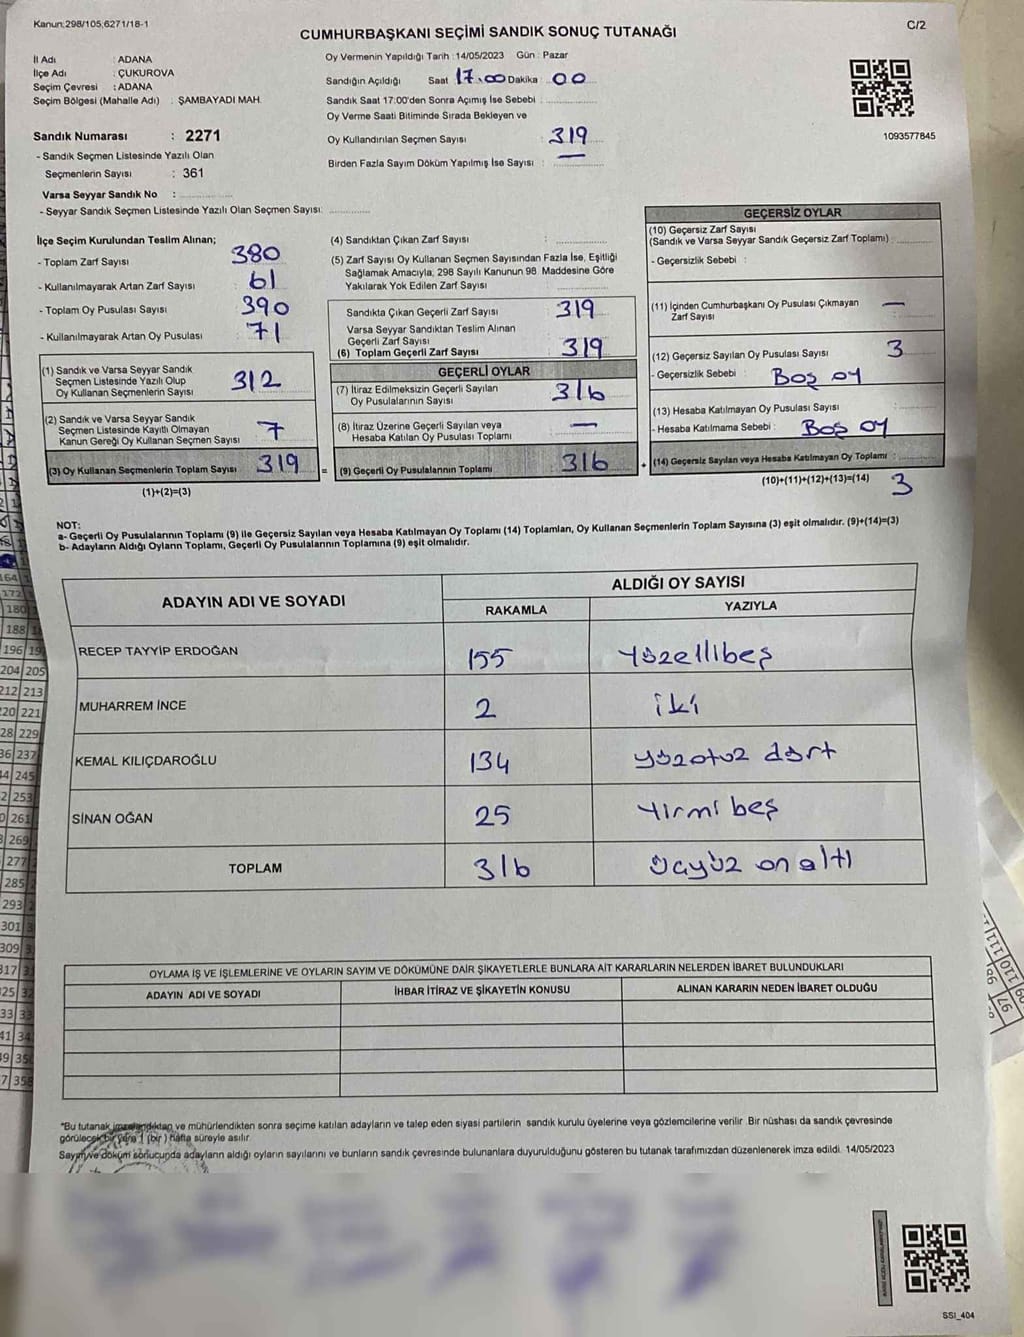 Kanun:298/105;6271/18-1
C/2
CUMHURBAŞKANI SEÇİMİ SANDIK SONUÇ TUTANAĞI
İl Adı : ADANA
İlçe Adı : ÇUKUROVA
Seçim Çevresi : ADANA
Seçim Bölgesi (Mahalle Adı) : ŞAMBAYADI MAH.
Sandık Numarası : 2271
- Sandık Seçmen Listesinde Yazılı Olan
Seçmenlerin Sayısı : 361
Varsa Seyyar Sandık No :
- Seyyar Sandık Seçmen Listesinde Yazılı Olan Seçmen Sayısı:
Oy Vermenin Yapıldığı Tarih :14/05/2023 Gün : Pazar
Sandığın Açıldığı Saat 17.00 Dakika 00
Sandık Saat 17:00'den Sonra Açımış İse Sebebi :
Oy Verme Saati Bitiminde Sırada Bekleyen ve
Oy Kullandırılan Seçmen Sayısı : 319
Birden Fazla Sayım Döküm Yapılmış İse Sayısı : —
1093577845
İlçe Seçim Kurulundan Teslim Alınan;
- Toplam Zarf Sayısı 380
- Kullanılmayarak Artan Zarf Sayısı 61
- Toplam Oy Pusulası Sayısı 390
- Kullanılmayarak Artan Oy Pusulası 71
(1) Sandık ve Varsa Seyyar Sandık
Seçmen Listesinde Yazılı Olup
Oy Kullanan Seçmenlerin Sayısı 312
(2) Sandık ve Varsa Seyyar Sandık
Seçmen Listesinde Kayıtlı Olmayan
Kanun Gereği Oy Kullanan Seçmen Sayısı 7
(3) Oy Kullanan Seçmenlerin Toplam Sayısı 319
(1)+(2)=(3)
(4) Sandıktan Çıkan Zarf Sayısı :
(5) Zarf Sayısı Oy Kullanan Seçmen Sayısından Fazla İse, Eşitliği
Sağlamak Amacıyla, 298 Sayılı Kanunun 98. Maddesine Göre
Yakılarak Yok Edilen Zarf Sayısı
Sandıkta Çıkan Geçerli Zarf Sayısı 319
Varsa Seyyar Sandıktan Teslim Alınan
Geçerli Zarf Sayısı
(6) Toplam Geçerli Zarf Sayısı 319
GEÇERLİ OYLAR
(7) İtiraz Edilmeksizin Geçerli Sayılan
Oy Pusulalarının Sayısı 316
(8) İtiraz Üzerine Geçerli Sayılan veya
Hesaba Katılan Oy Pusulası Toplamı —
= (9) Geçerli Oy Pusulalarının Toplamı 316
GEÇERSİZ OYLAR
(10) Geçersiz Zarf Sayısı
(Sandık ve Varsa Seyyar Sandık Geçersiz Zarf Toplamı) :
- Geçersizlik Sebebi :
(11) İçinden Cumhurbaşkanı Oy Pusulası Çıkmayan
Zarf Sayısı —
(12) Geçersiz Sayılan Oy Pusulası Sayısı 3
- Geçersizlik Sebebi : Boş oy
(13) Hesaba Katılmayan Oy Pusulası Sayısı
- Hesaba Katılmama Sebebi : Boş oy
+ (14) Geçersiz Sayılan veya Hesaba Katılmayan Oy Toplamı :
(10)+(11)+(12)+(13)=(14) 3
NOT:
a- Geçerli Oy Pusulalarının Toplamı (9) ile Geçersiz Sayılan veya Hesaba Katılmayan Oy Toplamı (14) Toplamları, Oy Kullanan Seçmenlerin Toplam Sayısına (3) eşit olmalıdır. (9)+(14)=(3)
b- Adayların Aldığı Oyların Toplamı, Geçerli Oy Pusulalarının Toplamına (9) eşit olmalıdır.
ADAYIN ADI VE SOYADI ALDIĞI OY SAYISI
RAKAMLA YAZIYLA
RECEP TAYYİP ERDOĞAN 155 yüzellibeş
MUHARREM İNCE 2 iki
KEMAL KILIÇDAROĞLU 134 yüzotuz dört
SİNAN OĞAN 25 Yirmi beş
TOPLAM 316 üçyüz on altı
OYLAMA İŞ VE İŞLEMLERİNE VE OYLARIN SAYIM VE DÖKÜMÜNE DAİR ŞİKAYETLERLE BUNLARA AİT KARARLARIN NELERDEN İBARET BULUNDUKLARI
ADAYIN ADI VE SOYADI İHBAR İTİRAZ VE ŞİKAYETİN KONUSU ALINAN KARARIN NEDEN İBARET OLDUĞU
*Bu tutanak imzalandıktan ve mühürlendikten sonra seçime katılan adayların ve talep eden siyasi partilerin sandık kurulu üyelerine veya gözlemcilerine verilir. Bir nüshası da sandık çevresinde
görülecek bir yere 1 (bir) hafta süreyle asılır.
Sayım ve döküm sonucunda adayların aldığı oyların sayılarını ve bunların sandık çevresinde bulunanlara duyurulduğunu gösteren bu tutanak tarafımızdan düzenlenerek imza edildi. 14/05/2023
SSI_404